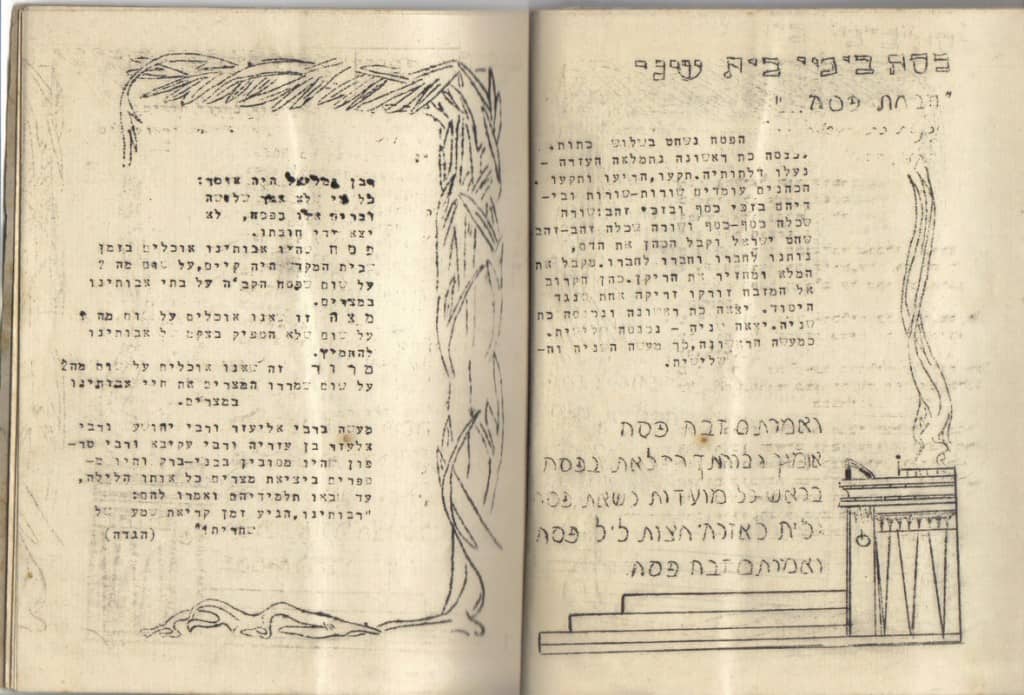 פסח בימי בית שני
"זבחת פסח.."
הפסח נשחט בשלוש כתות.
נכנסה כת ראשונה נתמלאה העזרה -
נעלו דלתותיה.תקעו,הריעו ותקעו .
הכהנים עומדים שורות-שורות ובי-
דיהם בזכי כסף ובזכי זהב:שורה
שכלה כסף-כסף ושורה שכלה זהב-זהב
שחט ישראל וקבל הכהן את הדם,
נותנו לחברו וחברו לחברו.מקבל את
המלא ומחזיר את הריקן.כהן הקרוב
אל המזבח זורקו זריקה אחת כנגד
היסוד. יצאה כת ראשונה ונכנסה כת
שניה.יצאה שניה - נכנסה שלישית.
כמעשה הראשונה,כך מעשה השניה וה-
שלישית.
ואמרתם זבח פסח
אומץ גבורותיך הפלאת בפסח
בראש כל מועדות נשאת פסח
גלית לאזרחי חצות ליל פסח
ואמרתם זבח פסח
רבן גמליאל היה אומר:
כל מי שלא אמר שלושה
דברים אלו בפסח, לא
יצא ידי חובתו.
פסח שהיו אבותינו אוכלים בזמן
שבית המקדש היה קיים,על שום מה ?
על שום שפסח הקב"ה על בתי אבותינו
במצרים.
מצה זו שאנו אוכלים על שום מה ?
על שום שלא הספיק בצקם של אבותינו
להחמיץ.
מרור זה שאנו אוכלים על שום מה?
על שום שמררו המצרים את חיי אבותינו
במצרים.
מעשה ברבי אליעזר ורבי יהושע ורבי
אלעזר בן עזריה ורבי עקיבא ורבי טר-
פון שהיו מסובין בבני-ברק והיו מ-
ספרים ביציאת מצרים כל אותו הלילה,
עד שבאו תלמידיהם ואמרו להם:
"רבותינו,הגיע זמן קריאת שמע של
שחרית!"
(הגדה)